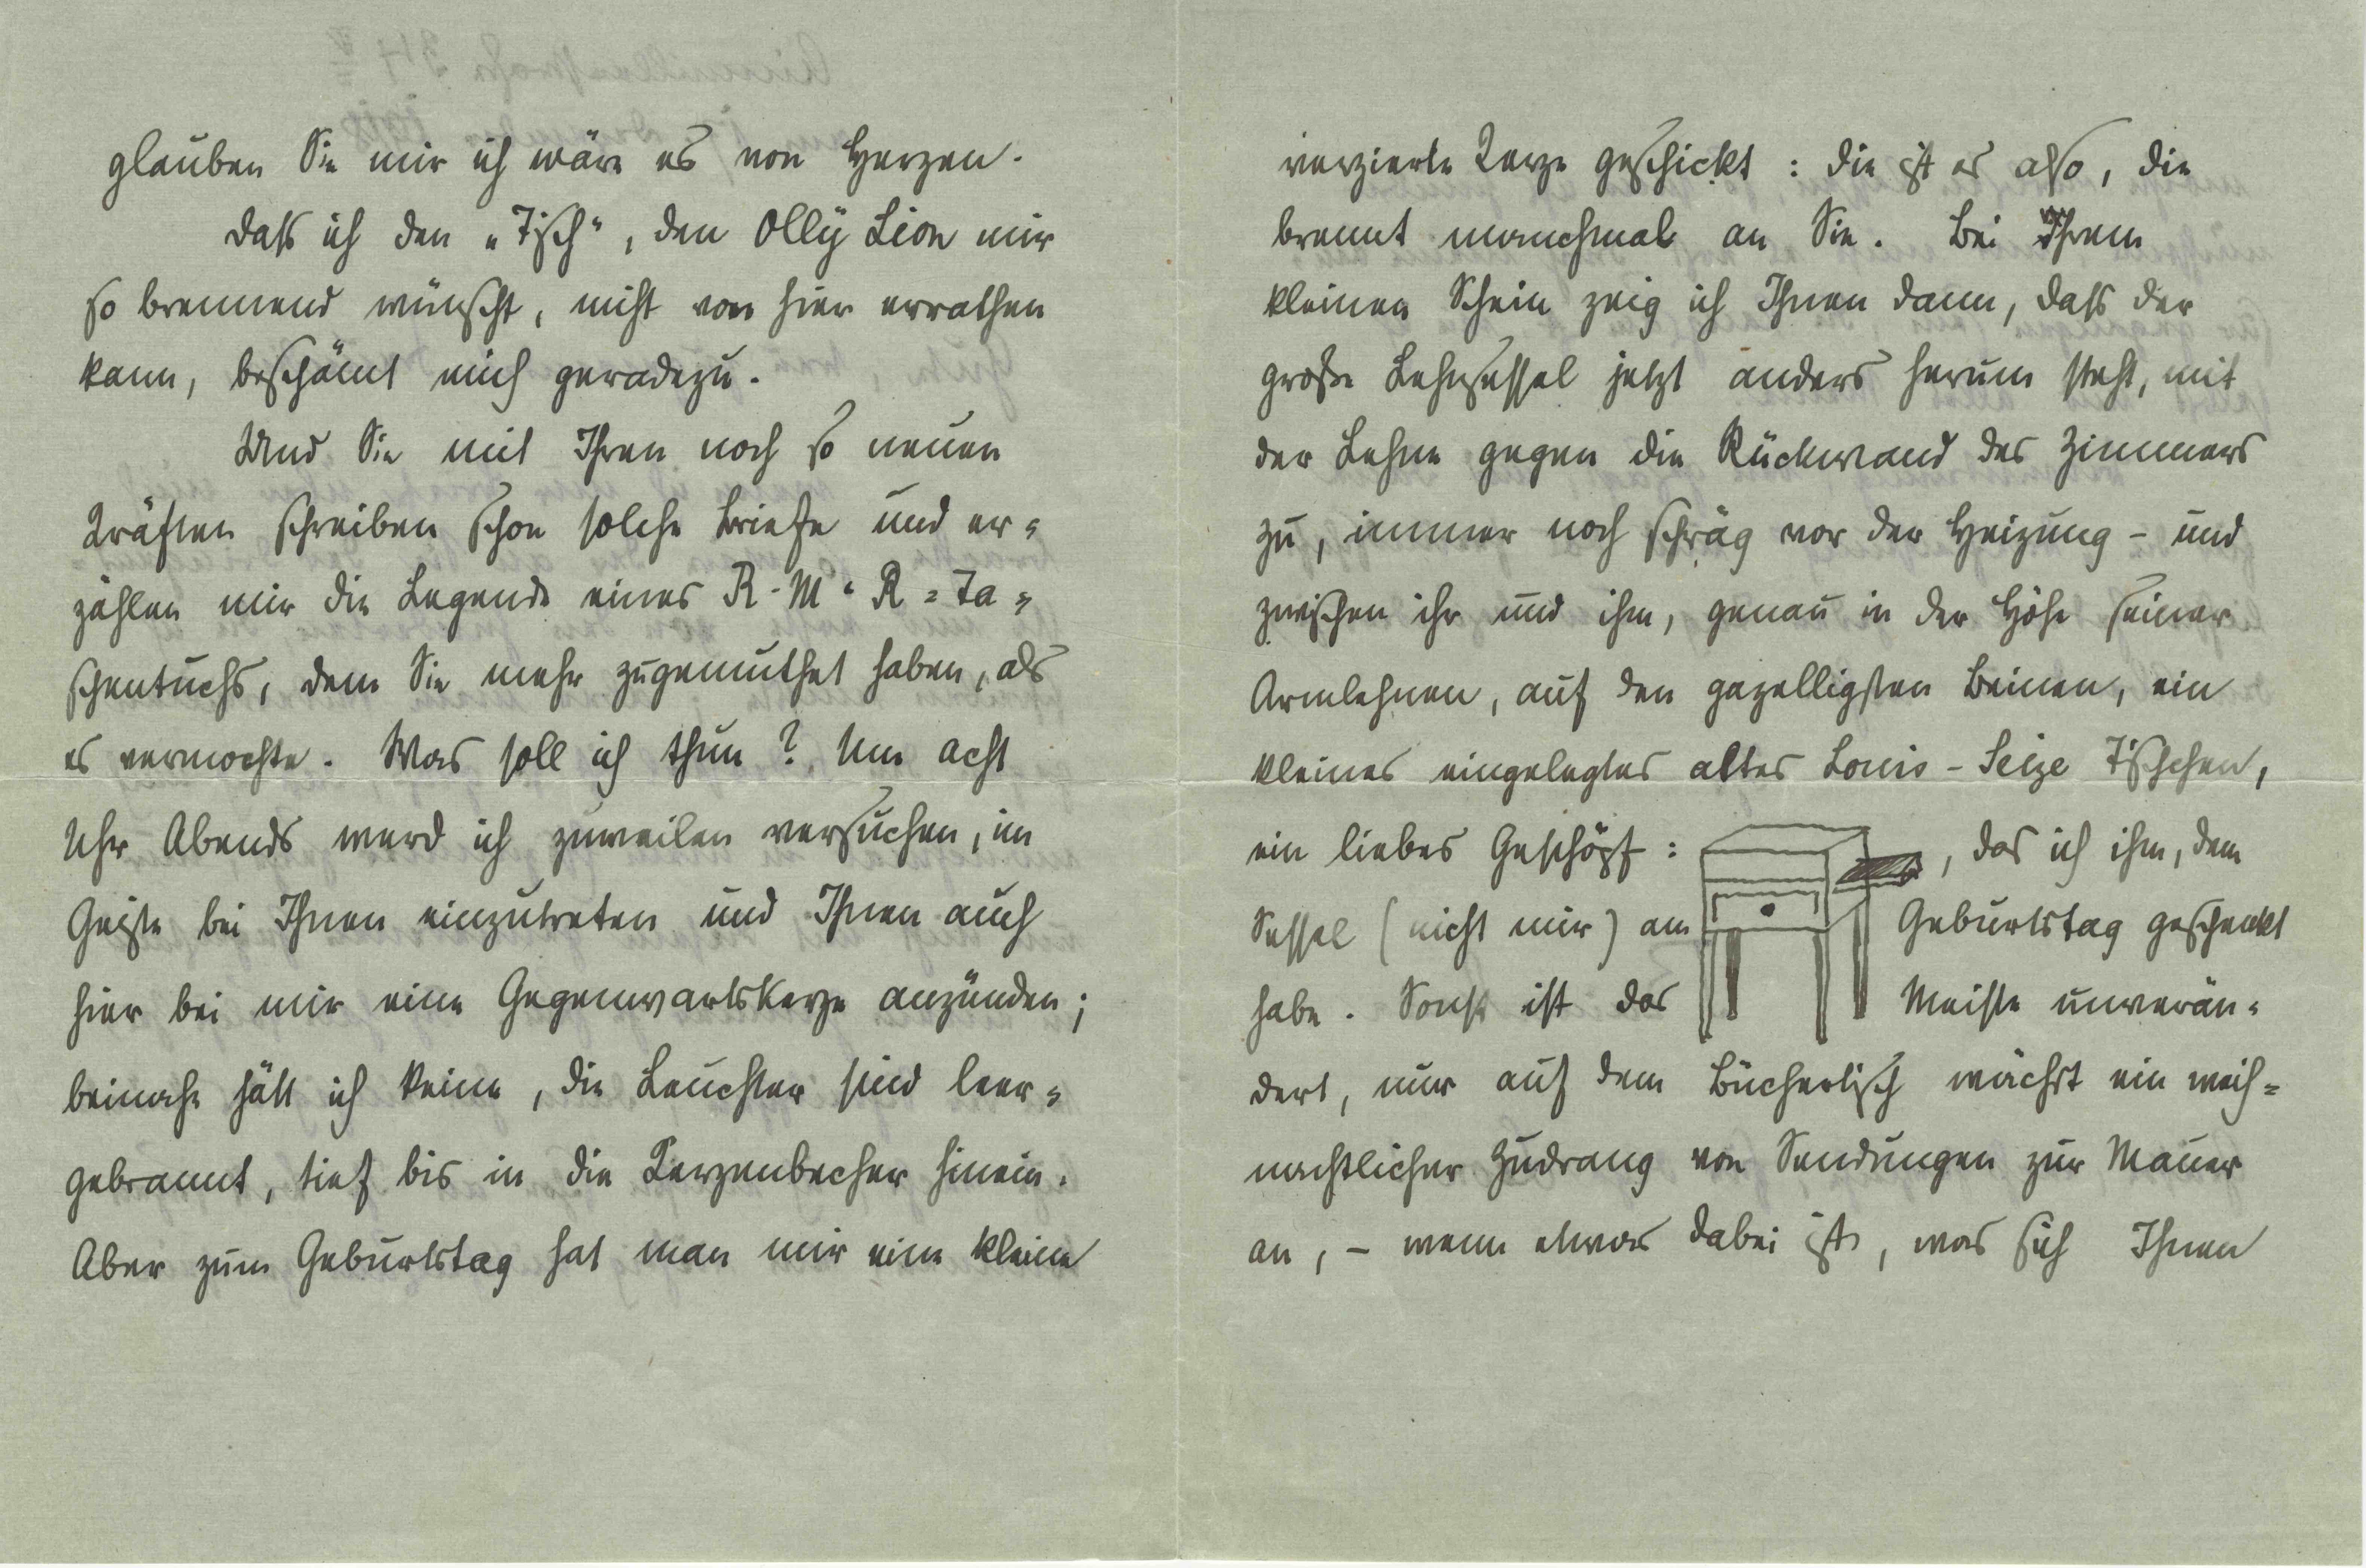 glauben Sie mir ich wäre es von Herzen.
Dass ich den „Tisch“, den Olly Lion mir
so brennend wünscht, nicht von hier errathen
kann, beschämt mich geradezu.
Und Sie mit Ihren noch so neuen
Kräften schreiben schon solche Briefe und er=
zählen mir die Legende eines R-M-R=Ta=
schentuchs, dem Sie mehr zugemuthet haben, als
es vermochte. Was soll ich thun? Um acht
Uhr Abends werd ich zuweilen versuchen, im
Geiste bei Ihnen einzutreten und Ihnen auch
hier bei mir eine Gegenwartskerze anzünden;
beinahe hätt ich keine, die Leuchter sind leer=
gebrannt, tief bis in die Kerzenbecher hinein.
Aber zum Geburtstag hat man mir eine kleine
verzierte Kerze geschickt: die ist es also, die
brennt manchmal an Sie. Bei Ihrem
kleinen Schein zeig ich Ihnen dann, dass der
große Lehnsessel jetzt anders herum steht, mit
der Lehne gegen die Rückwand des Zimmers
zu, immer noch schräg vor der Heizung – und
zwischen ihr und ihm, genau in der Höhe seiner
Armlehnen, auf den gazelligsten Beinen, ein
kleines eingelegtes altes Louis-Seize Tischchen,
ein liebes Geschöpf: , das ich ihm, dem
Sessel (nicht mir) am Geburtstag geschenkt
habe. Sonst ist das Meiste unverän=
dert, nur auf dem Büchertisch wächst ein weih=
nachtlicher Zudrang von Sendungen zur Mauer
an, – wenn etwas dabei ist, was sich Ihnen